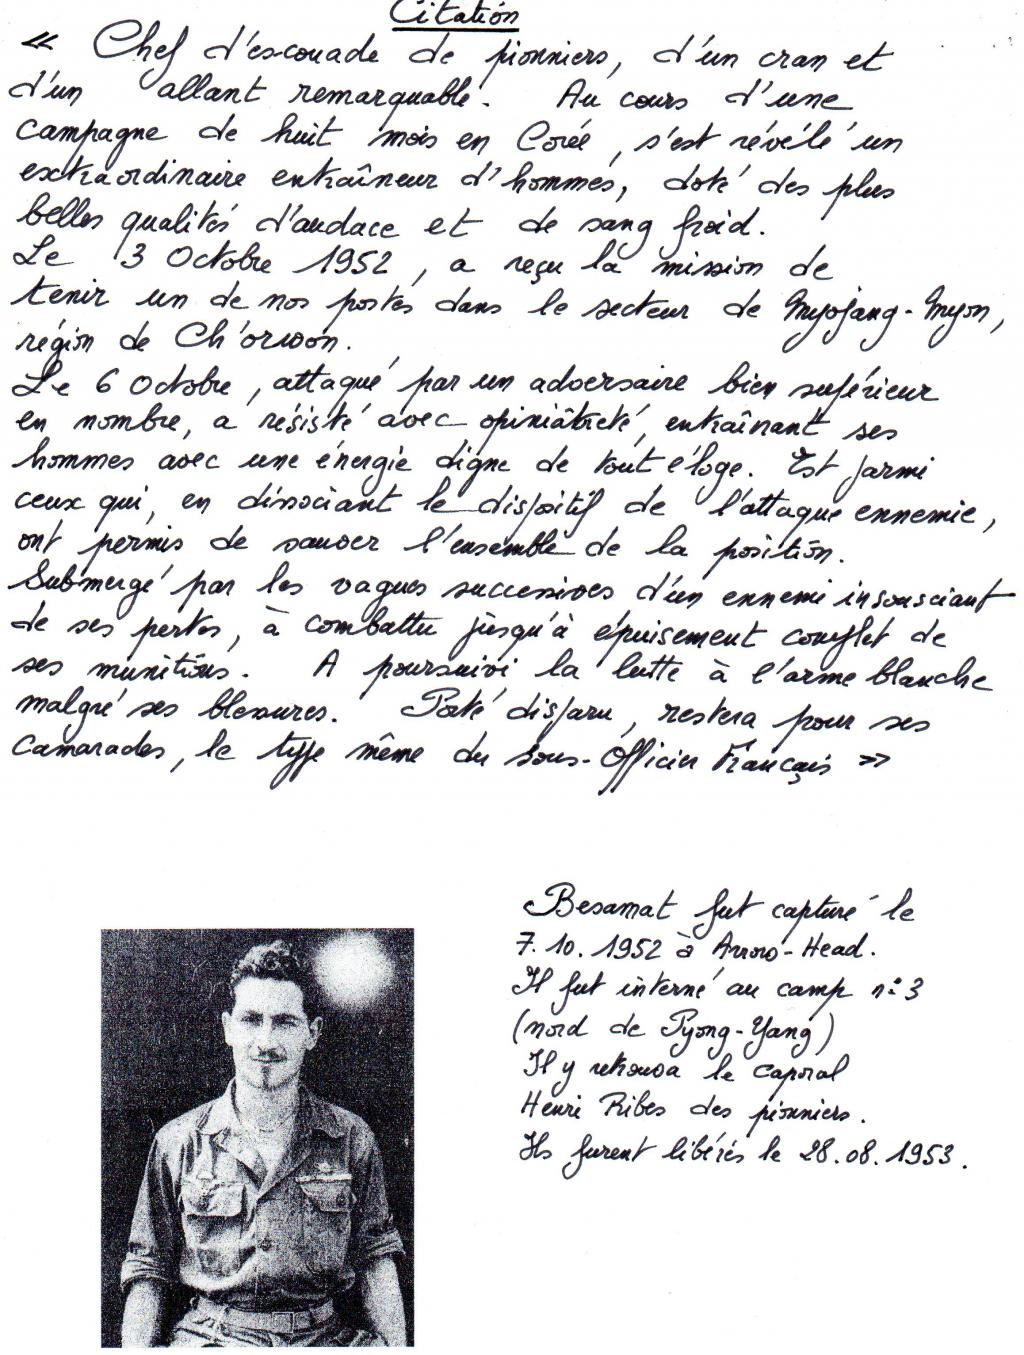 Citation
« Chef d'escouade de pionniers, d'un cran et
d'un allant remarquable. Au cours d'une
campagne de huit mois en Corée, s'est révélé un
extraordinaire entraîneur d'hommes, doté des plus
belles qualités d'audace et de sang froid.
Le 3 Octobre 1952, a reçu la mission de
tenir un de nos postes dans le secteur de Myojang-Myon,
région de Ch'orwon.
Le 6 Octobre, attaqué par un adversaire bien supérieur
en nombre, a résisté avec opiniâtreté, entraînant ses
hommes avec une énergie digne de tout éloge. Est parmi
ceux qui, en dissociant le dispositif de l'attaque ennemie,
ont permis de sauver l'ensemble de la position.
Submergé par les vagues successives d'un ennemi insousciant
de ses pertes, à combattu jusqu'à épuisement complet de
ses munitions. A poursuivi la lutte à l'arme blanche
malgré ses blessures. Porté disparu, restera pour ses
camarades, le type même du Sous-Officier Français »
Besamat fut capturé le
7.10.1952 à Arrow-Head.
Il fut interné au camp n: 3
(nord de Pyong-Yang)
Il y retrouva le caporal
Henri Ribes des pionniers.
Ils furent libérés le 28.08.1953.